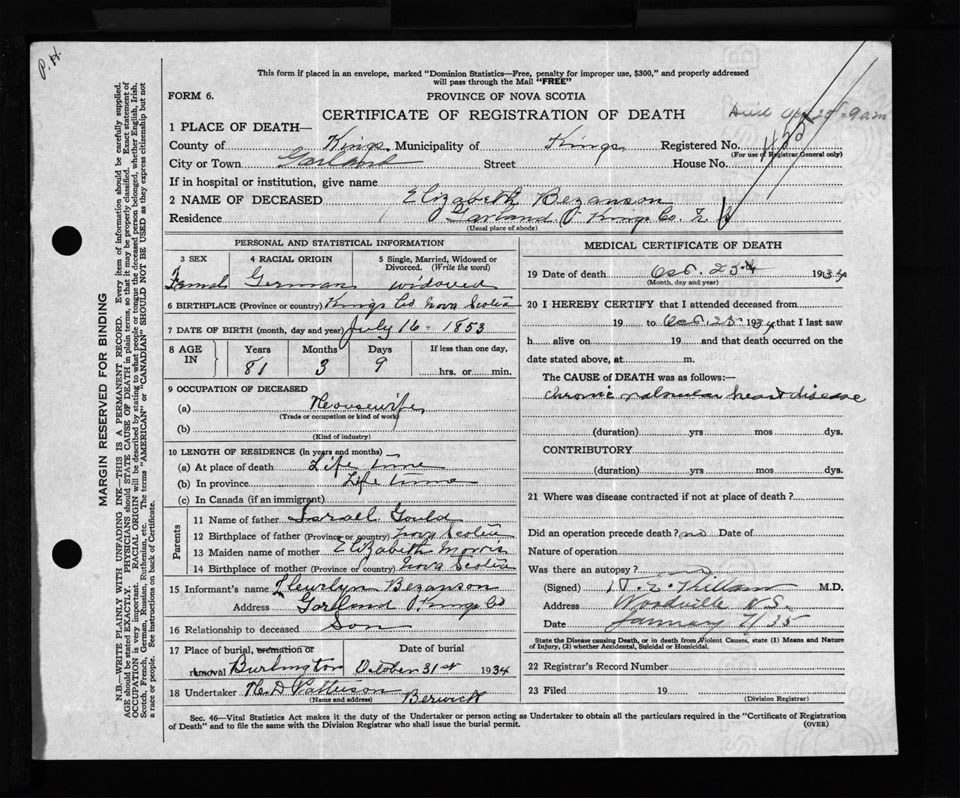 P. H.
This form if placed in an envelope, marked "Dominion Statistics—Free, penalty for improper use, $300," and properly addressed
will pass through the Mail "FREE"
FORM 6. PROVINCE OF NOVA SCOTIA
CERTIFICATE OF REGISTRATION OF DEATH
Died 9 am
1 PLACE OF DEATH—
County of Kings Municipality of Kings Registered No.
(For use of Registrar General only)
City or Town Garland Street House No.
If in hospital or institution, give name
2 NAME OF DECEASED Elizabeth Bezanson
Residence Garland Kings Co. N. S
(Usual place of abode)
PERSONAL AND STATISTICAL INFORMATION
3 SEX 4 RACIAL ORIGIN 5 Single, Married, Widowed or Divorced. (Write the word)
Female German widowed
6 BIRTHPLACE (Province or country) Kings Co Nova Scotia
7 DATE OF BIRTH (month, day and year) July 16 - 1853
8 AGE IN Years Months Days If less than one day,
81 3 9 hrs. or min.
9 OCCUPATION OF DECEASED
(a) Housewife
(Trade or occupation or kind of work)
(b)
(Kind of industry)
10 LENGTH OF RESIDENCE (in years and months)
(a) At place of death Life time
(b) In province Life time
(c) In Canada (if an immigrant)
Parents
11 Name of father Israel Gould
12 Birthplace of father (Province or country) Nova Scotia
13 Maiden name of mother Elizabeth Morris
14 Birthplace of mother (Province or country) Nova Scotia
15 Informant's name Llewrlyn Bezanson
Address Garland Kings Co
16 Relationship to deceased Son
17 Place of burial, cremation or removal Burlington Date of burial October 31st 1934
18 Undertaker H. D Pattison Berwick
(Name and address)
MEDICAL CERTIFICATE OF DEATH
19 Date of death Oct. 25 1934
(Month, day and year)
20 I HEREBY CERTIFY that I attended deceased from
19 to Oct. 25 1934 that I last saw
h alive on 19 and that death occurred on the
date stated above, at m.
The CAUSE of DEATH was as follows:—
chronic valvular heart disease
(duration) yrs mos dys.
CONTRIBUTORY
(duration) yrs mos dys.
21 Where was disease contracted if not at place of death?
Did an operation precede death? no Date of
Nature of operation
Was there an autopsy?
(Signed) M.D.
Address Woodville N.S.
Date January /35
State the Disease causing Death, or in death from Violent Causes, state (1) Means and Nature
of Injury, (2) whether Accidental, Suicidal or Homicidal.
22 Registrar's Record Number
23 Filed 19
(Division Registrar)
Sec. 46—Vital Statistics Act makes it the duty of the Undertaker or person acting as Undertaker to obtain all the particulars required in the "Certificate of Registration
of Death" and to file the same with the Division Registrar who shall issue the burial permit. (OVER)
MARGIN RESERVED FOR BINDING
N.B.—WRITE PLAINLY WITH UNFADING INK—THIS IS A PERMANENT RECORD. Every item of information should be carefully supplied.
AGE should be stated EXACTLY. PHYSICIANS should STATE CAUSE OF DEATH in plain terms, so that it may be properly classified. Exact statement of
OCCUPATION is very important. RACIAL ORIGIN will be described by stating to what people or tongue the deceased person belonged, whether English, Irish,
Scotch, French, German, Russian, Ruthenian, etc. The terms "AMERICAN" or "CANADIAN" SHOULD NOT BE USED as they express citizenship but not
a race or people. See instructions on back of Certificate.